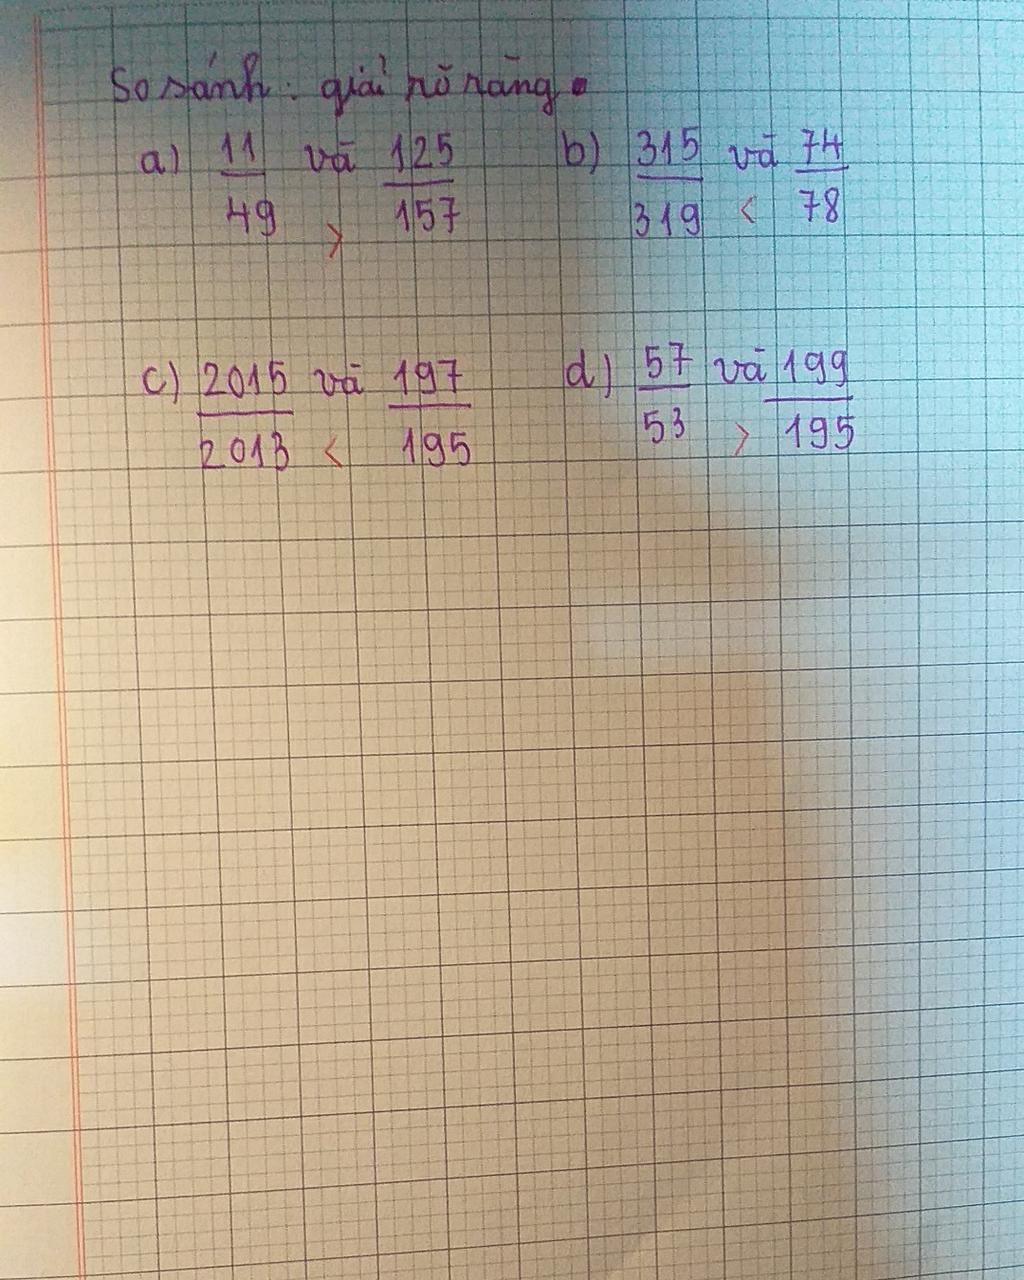 So sánh. giải rõ ràng.
a) 11/49 và 125/157 b) 315/319 và 74/78
> <
c) 2015/2013 và 197/195 d) 57/53 và 199/195
< >